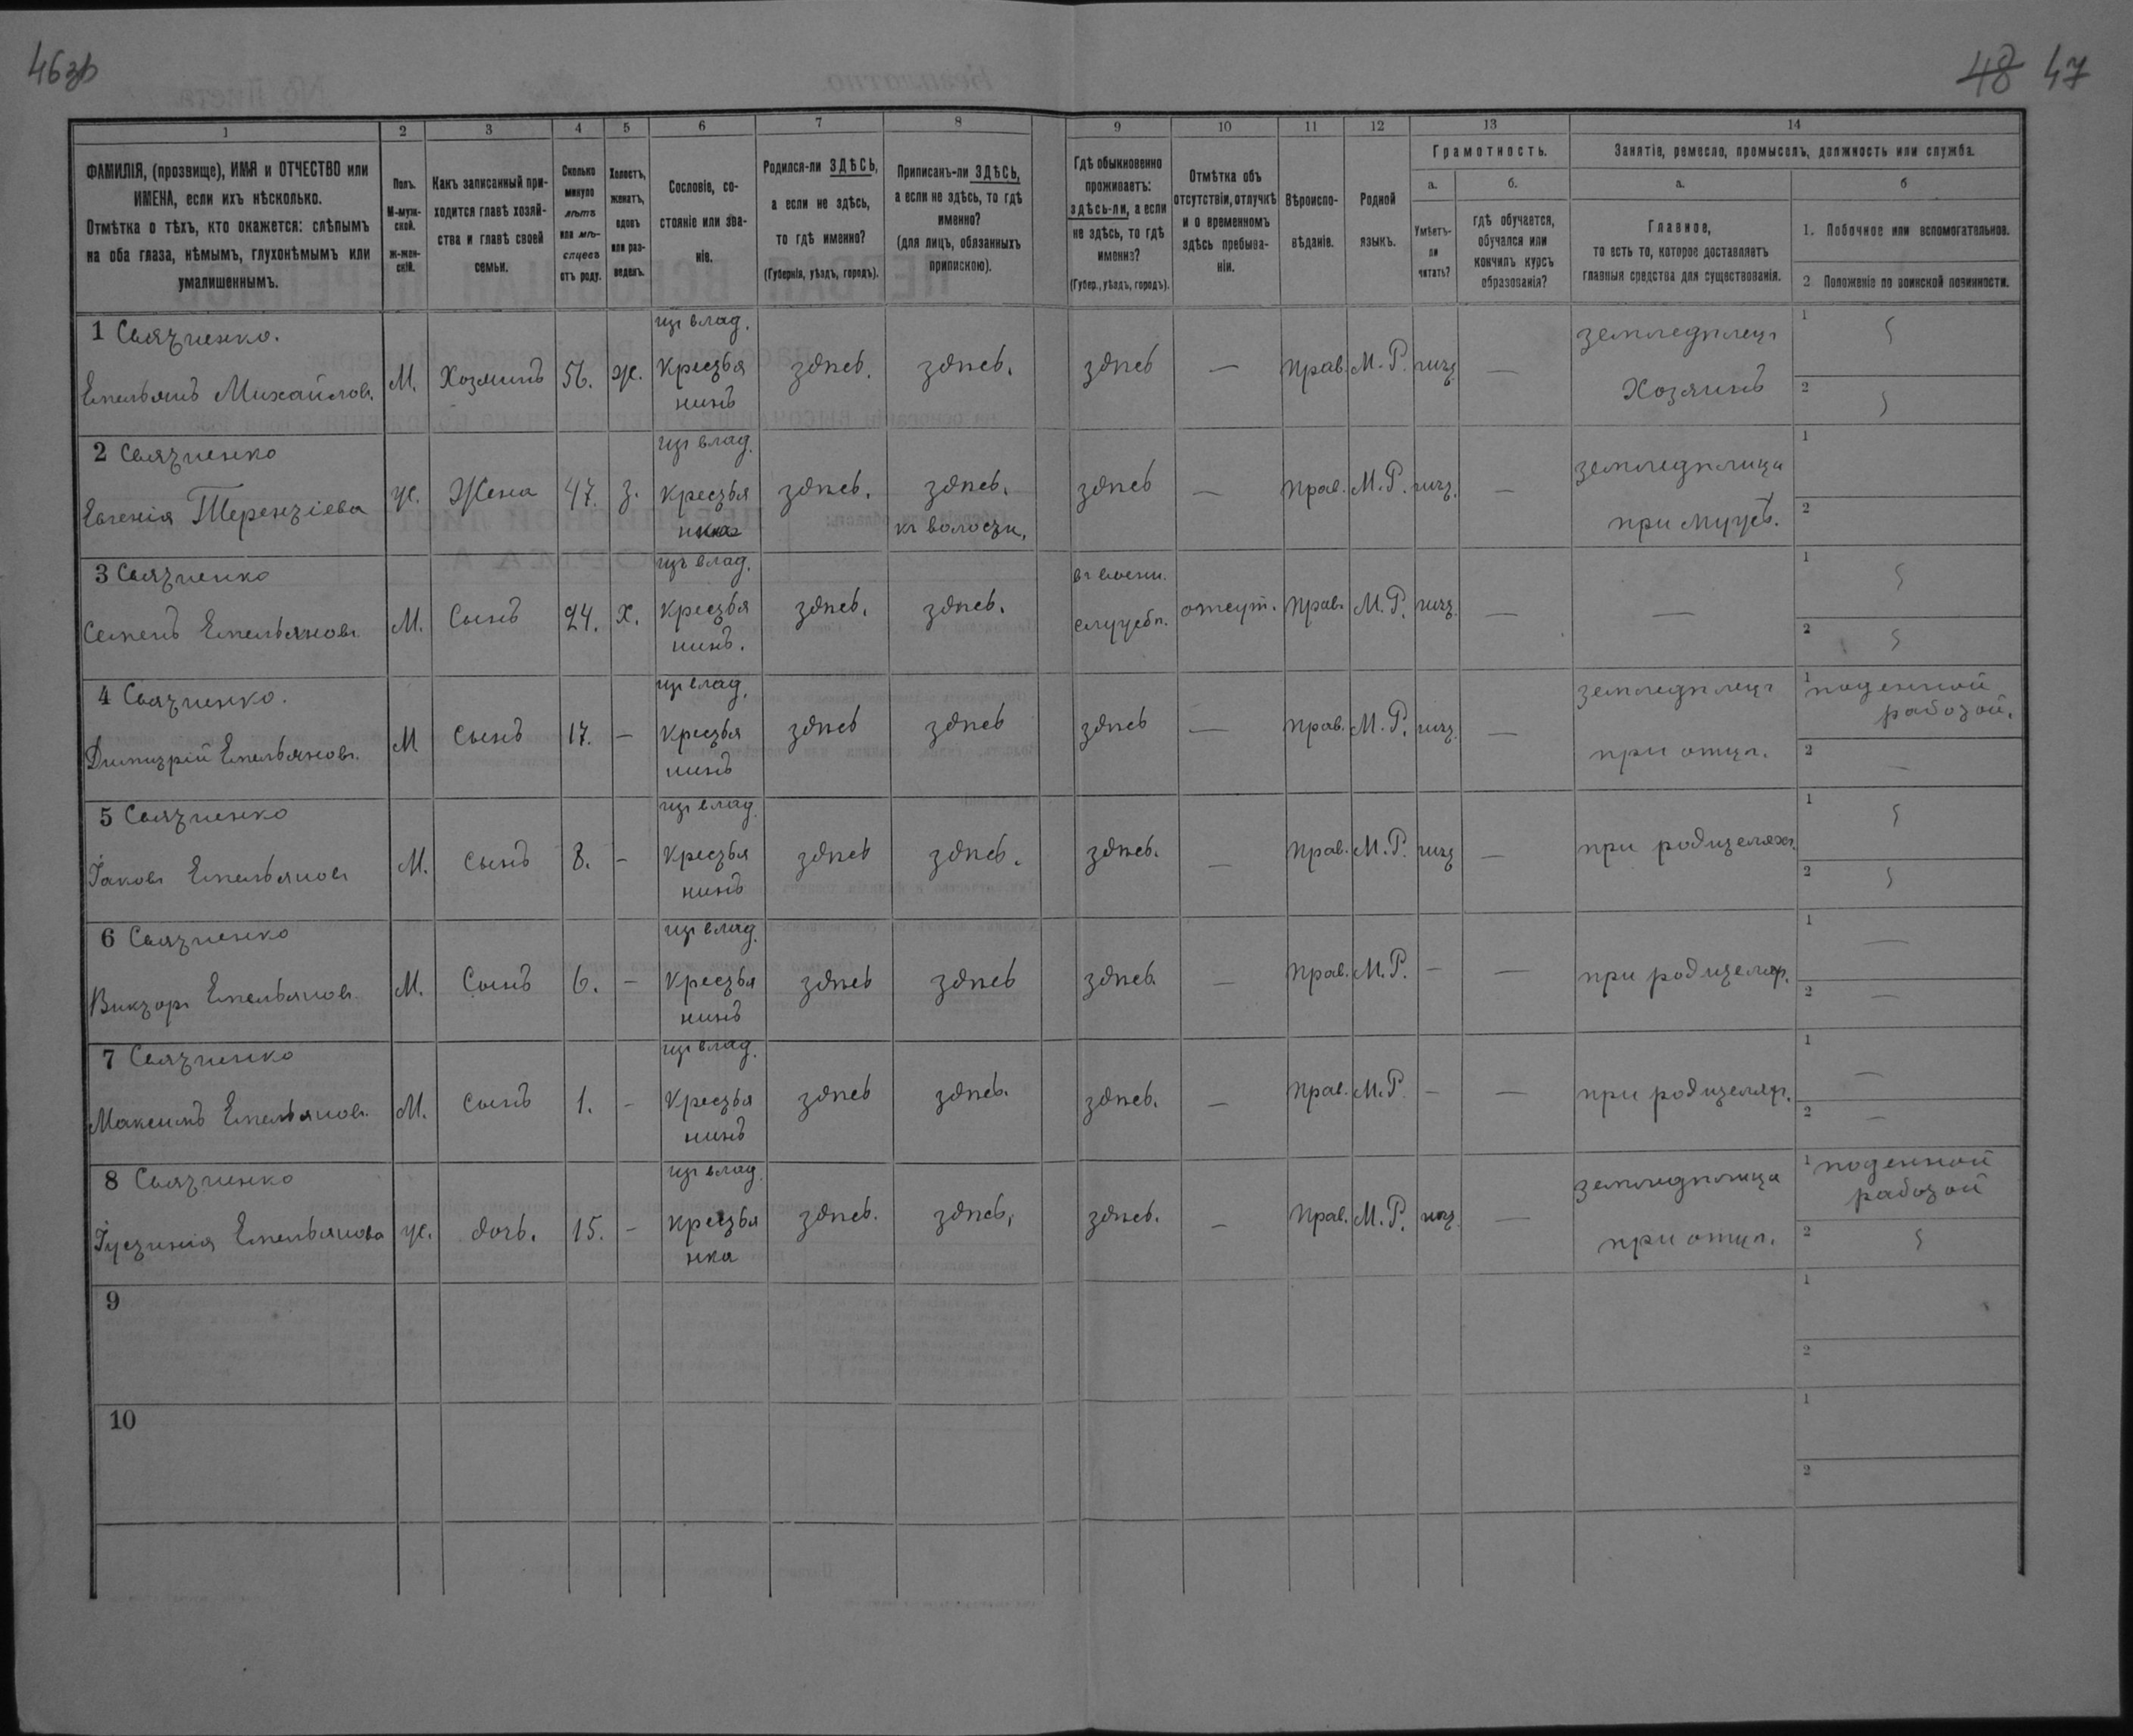 46зв
48 47
1
2
3
4
5
6
7
8
9
10
11
12
13
14
ФАМИЛІЯ, (прозвище), ИМЯ и ОТЧЕСТВО или
ИМЕНА, если ихъ нѣсколько.
Отмѣтка о тѣхъ, кто окажется: слѣпымъ
на оба глаза, нѣмымъ, глухонѣмымъ или
умалишеннымъ.
Полъ.
М-муж-
ской.
ж-жен-
скій.
Какъ записанный при-
ходится главѣ хозяй-
ства и главѣ своей
семьи.
Сколько
минуло
лѣтъ
или мѣ-
сяцевъ
отъ роду.
Холостъ,
женатъ,
вдовъ
или раз-
веденъ.
Сословіе, со-
стояніе или зва-
ніе.
Родился-ли ЗДѢСЬ,
а если не здѣсь,
то гдѣ именно?
(Губернія, уѣздъ, городъ).
Приписанъ-ли ЗДѢСЬ,
а если не здѣсь, то гдѣ
именно?
(для лицъ, обязанныхъ
припискою).
Гдѣ обыкновенно
проживаетъ:
здѣсь-ли, а если
не здѣсь, то гдѣ
именно?
(Губер., уѣздъ, городъ).
Отмѣтка объ
отсутствіи, отлучкѣ
и о временномъ
здѣсь пребыва-
ніи.
Вѣроиспо-
вѣданіе.
Родной
языкъ.
Грамотность.
а.
Умѣетъ-
ли
читать?
б.
гдѣ обучается,
обучался или
кончилъ курсъ
образованія?
Занятіе, ремесло, промыселъ, должность или служба.
а.
Главное,
то есть то, которое доставляетъ
главныя средства для существованія.
б
1. Побочное или вспомогательное.
2 Положеніе по воинской повинности.
1 Святненко.
Емельянъ Михайлов. М. Хозяинъ 56. ж.
изъ влад.
Крестья
нинъ
здѣсь. здѣсь. здѣсь — прав. М. Р. нѣт. —
земледѣлецъ
Хозяинъ
1
2
2 Святненко
Евгенія Терентіева ж. Жена 47. з.
изъ влад.
крестья
нка
здѣсь. здѣсь.
къ волости.
здѣсь — прав. М. Р. нѣт. —
земледѣлица
при мужѣ.
1
2
3 Святненко
Семенъ Емельяновъ М. Сынъ 24. х.
изъ влад.
крестья
нинъ.
здѣсь. здѣсь.
въ воен.
службѣ.
отсут. прав. М. Р. нѣт. — —
1
2
4 Святненко.
Димитрій Емельяновъ. М сынъ 17. —
изъ влад.
крестья
нинъ
здѣсь здѣсь здѣсь — прав. М. Р. нѣт. —
земледѣлецъ
при отцѣ.
1 поденной
работой.
2 —
5 Святненко
Іаковъ Емельяновъ М. сынъ 8. -
изъ влад.
крестья
нинъ
здѣсь здѣсь. здѣсь. — прав. М. Р. нѣт —
при родителяхъ.
1
2
6 Святненко
Викторъ Емельяновъ. М. Сынъ 6. -
изъ влад.
крестья
нинъ
здѣсь здѣсь здѣсь. — прав. М. Р. - —
при родителях.
1 —
2 —
7 Святненко
Максимъ Емельяновъ. М. сынъ 1. -
изъ влад.
крестья
нинъ
здѣсь здѣсь. здѣсь. — прав. М. Р - —
при родителях.
1 —
2 —
8 Святненко
Іустинія Емельянова ж. дочь. 15. -
изъ влад.
крестья
нка
здѣсь. здѣсь, здѣсь. — прав. М. Р. нѣт. —
земледѣлица
при отцѣ.
1 поденной
работой
2
9
1
2
10
1
2